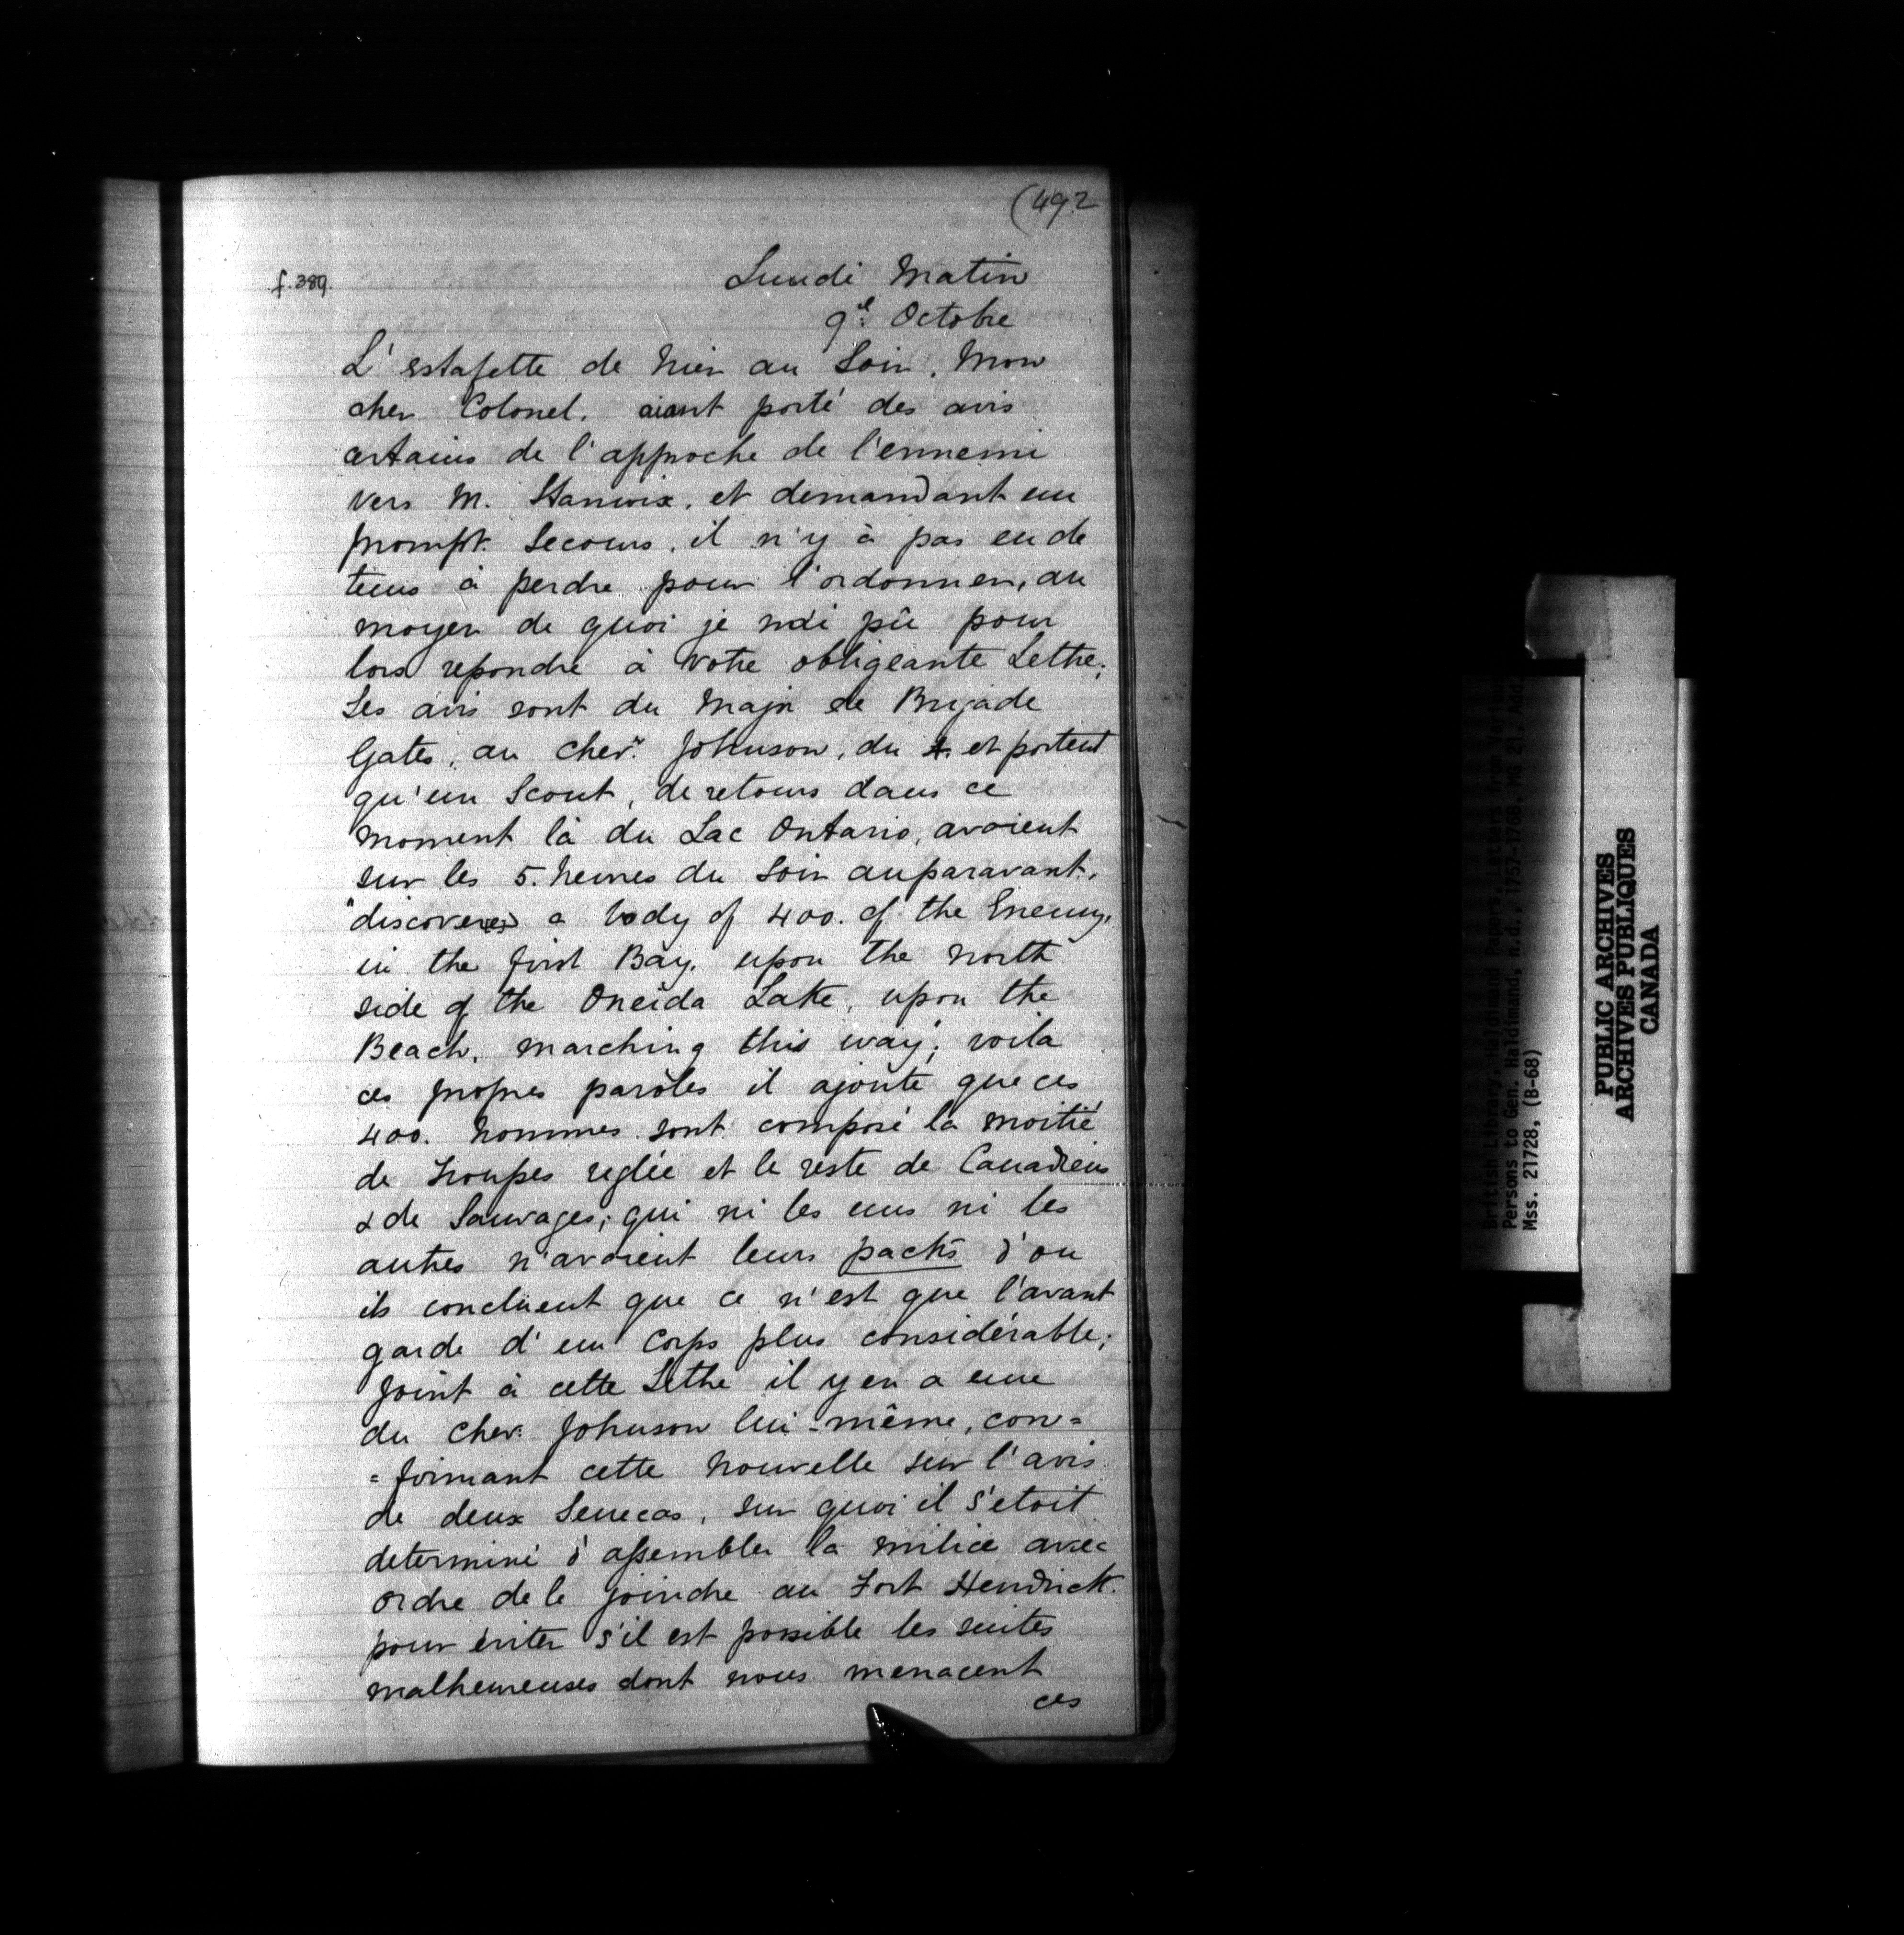 (492
f. 389.
Lundi Matin
9e. Octobre
L'estafette de hier au Soir, Mon
cher Colonel, aiant porté des avis
certains de l'approche de l'ennemi
vers M. Stanwix, et demandant un
prompt. Secours, il n'y à pas eu de
tems à perdre pour l'ordonner, au
moyen de quoi je n'ai pû pour
lors repondre à votre obligeante Lettre;
Les avis sont du Major de Brigade
Gates, au Chevr. Johnson, du 4. et portent
qu'un Scout, de retours dans ce
moment là du Lac Ontario, avoient
sur les 5. heures du Soir auparavant,
"discovered a body of 400. of the Enemy,
in the first Bay, upon the North
side of the Oneida Lake, upon the
Beach, marching this way; voila
ces propres paroles il ajoute que ces
400. hommes sont composé la moitié
de troupes reglée et le reste de Canadiens
& de Sauvages; qui ni les uns ni les
autres n'avoient leurs packs d'ou
ils concluent que ce n'est que l'avant
garde d'un Corps plus considérable;
Joint à cette Lettre il y en a une
du Chev. Johnson lui-même, con=
=firmant cette nouvelle sur l'avis
de deux Senecas, sur quoi il s'etoit
determiné d'assembler la milice avec
ordre de le joindre au Fort Hendrick.
pour eviter s'il est possible les suites
malheureuses dont nous menacent
ces
British Library, Haldimand Papers, Letters from Various
Persons to Gen. Haldimand, n.d., 1757-1768, MG 21, Add.
Mss. 21728, (B-68)
PUBLIC ARCHIVES
ARCHIVES PUBLIQUES
CANADA